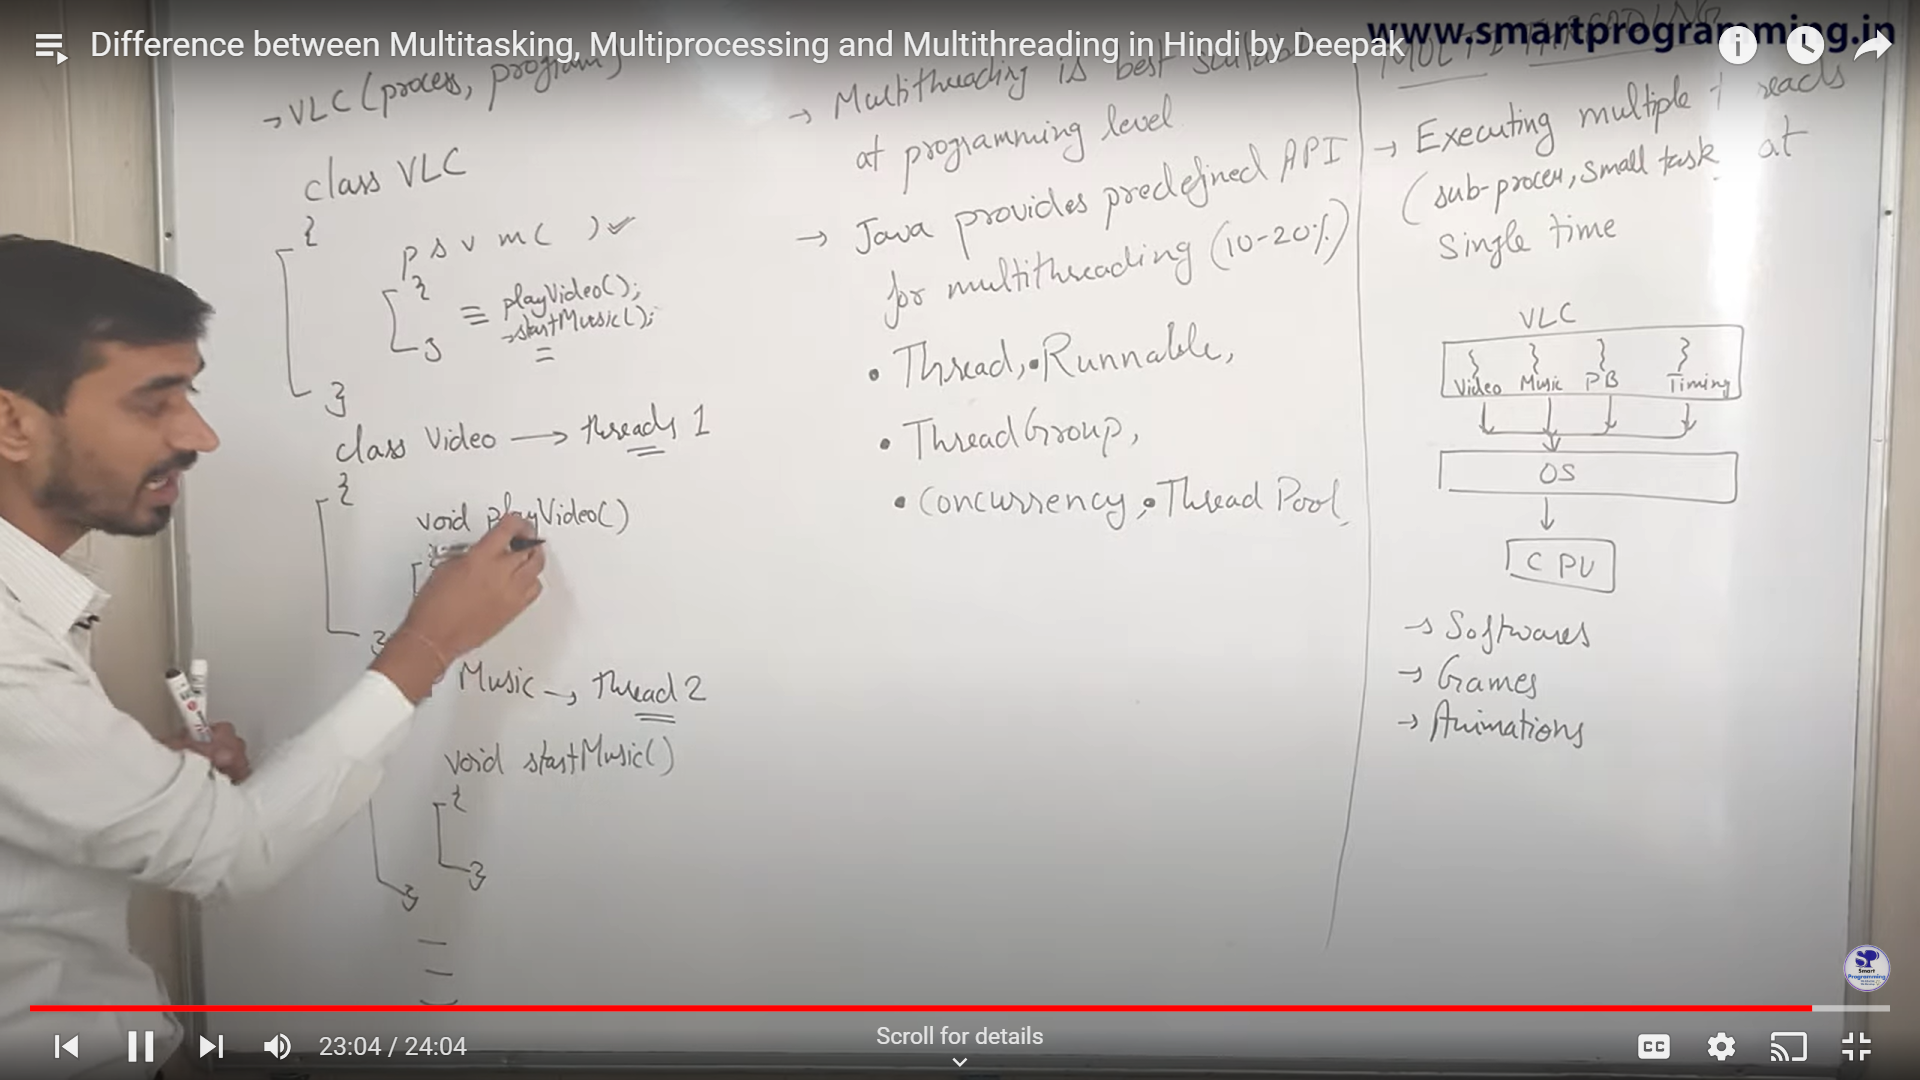 www.smartprogramming.in
Difference between Multitasking, Multiprocessing and Multithreading in Hindi by Deepak
→ VLC (process, program)
class VLC
{
p s v m ( ) ✓
{
playVideo();
→ startMusic();
}
}
class Video → threads 1
{
void playVideo()
{
}
Music → thread 2
void startMusic()
{
}
}
→ Multithreading is best
at programming level
→ Java provides predefined API
for multithreading (10-20%)
• Thread, • Runnable,
• ThreadGroup,
• Concurrency, • Thread Pool
→ Executing multiple
(sub-process, small task at
single time
VLC
Video Music PB Timing
OS
CPU
→ Softwares
→ Games
→ Animations
SP
Smart
Programming
23:04 / 24:04
Scroll for details
CC